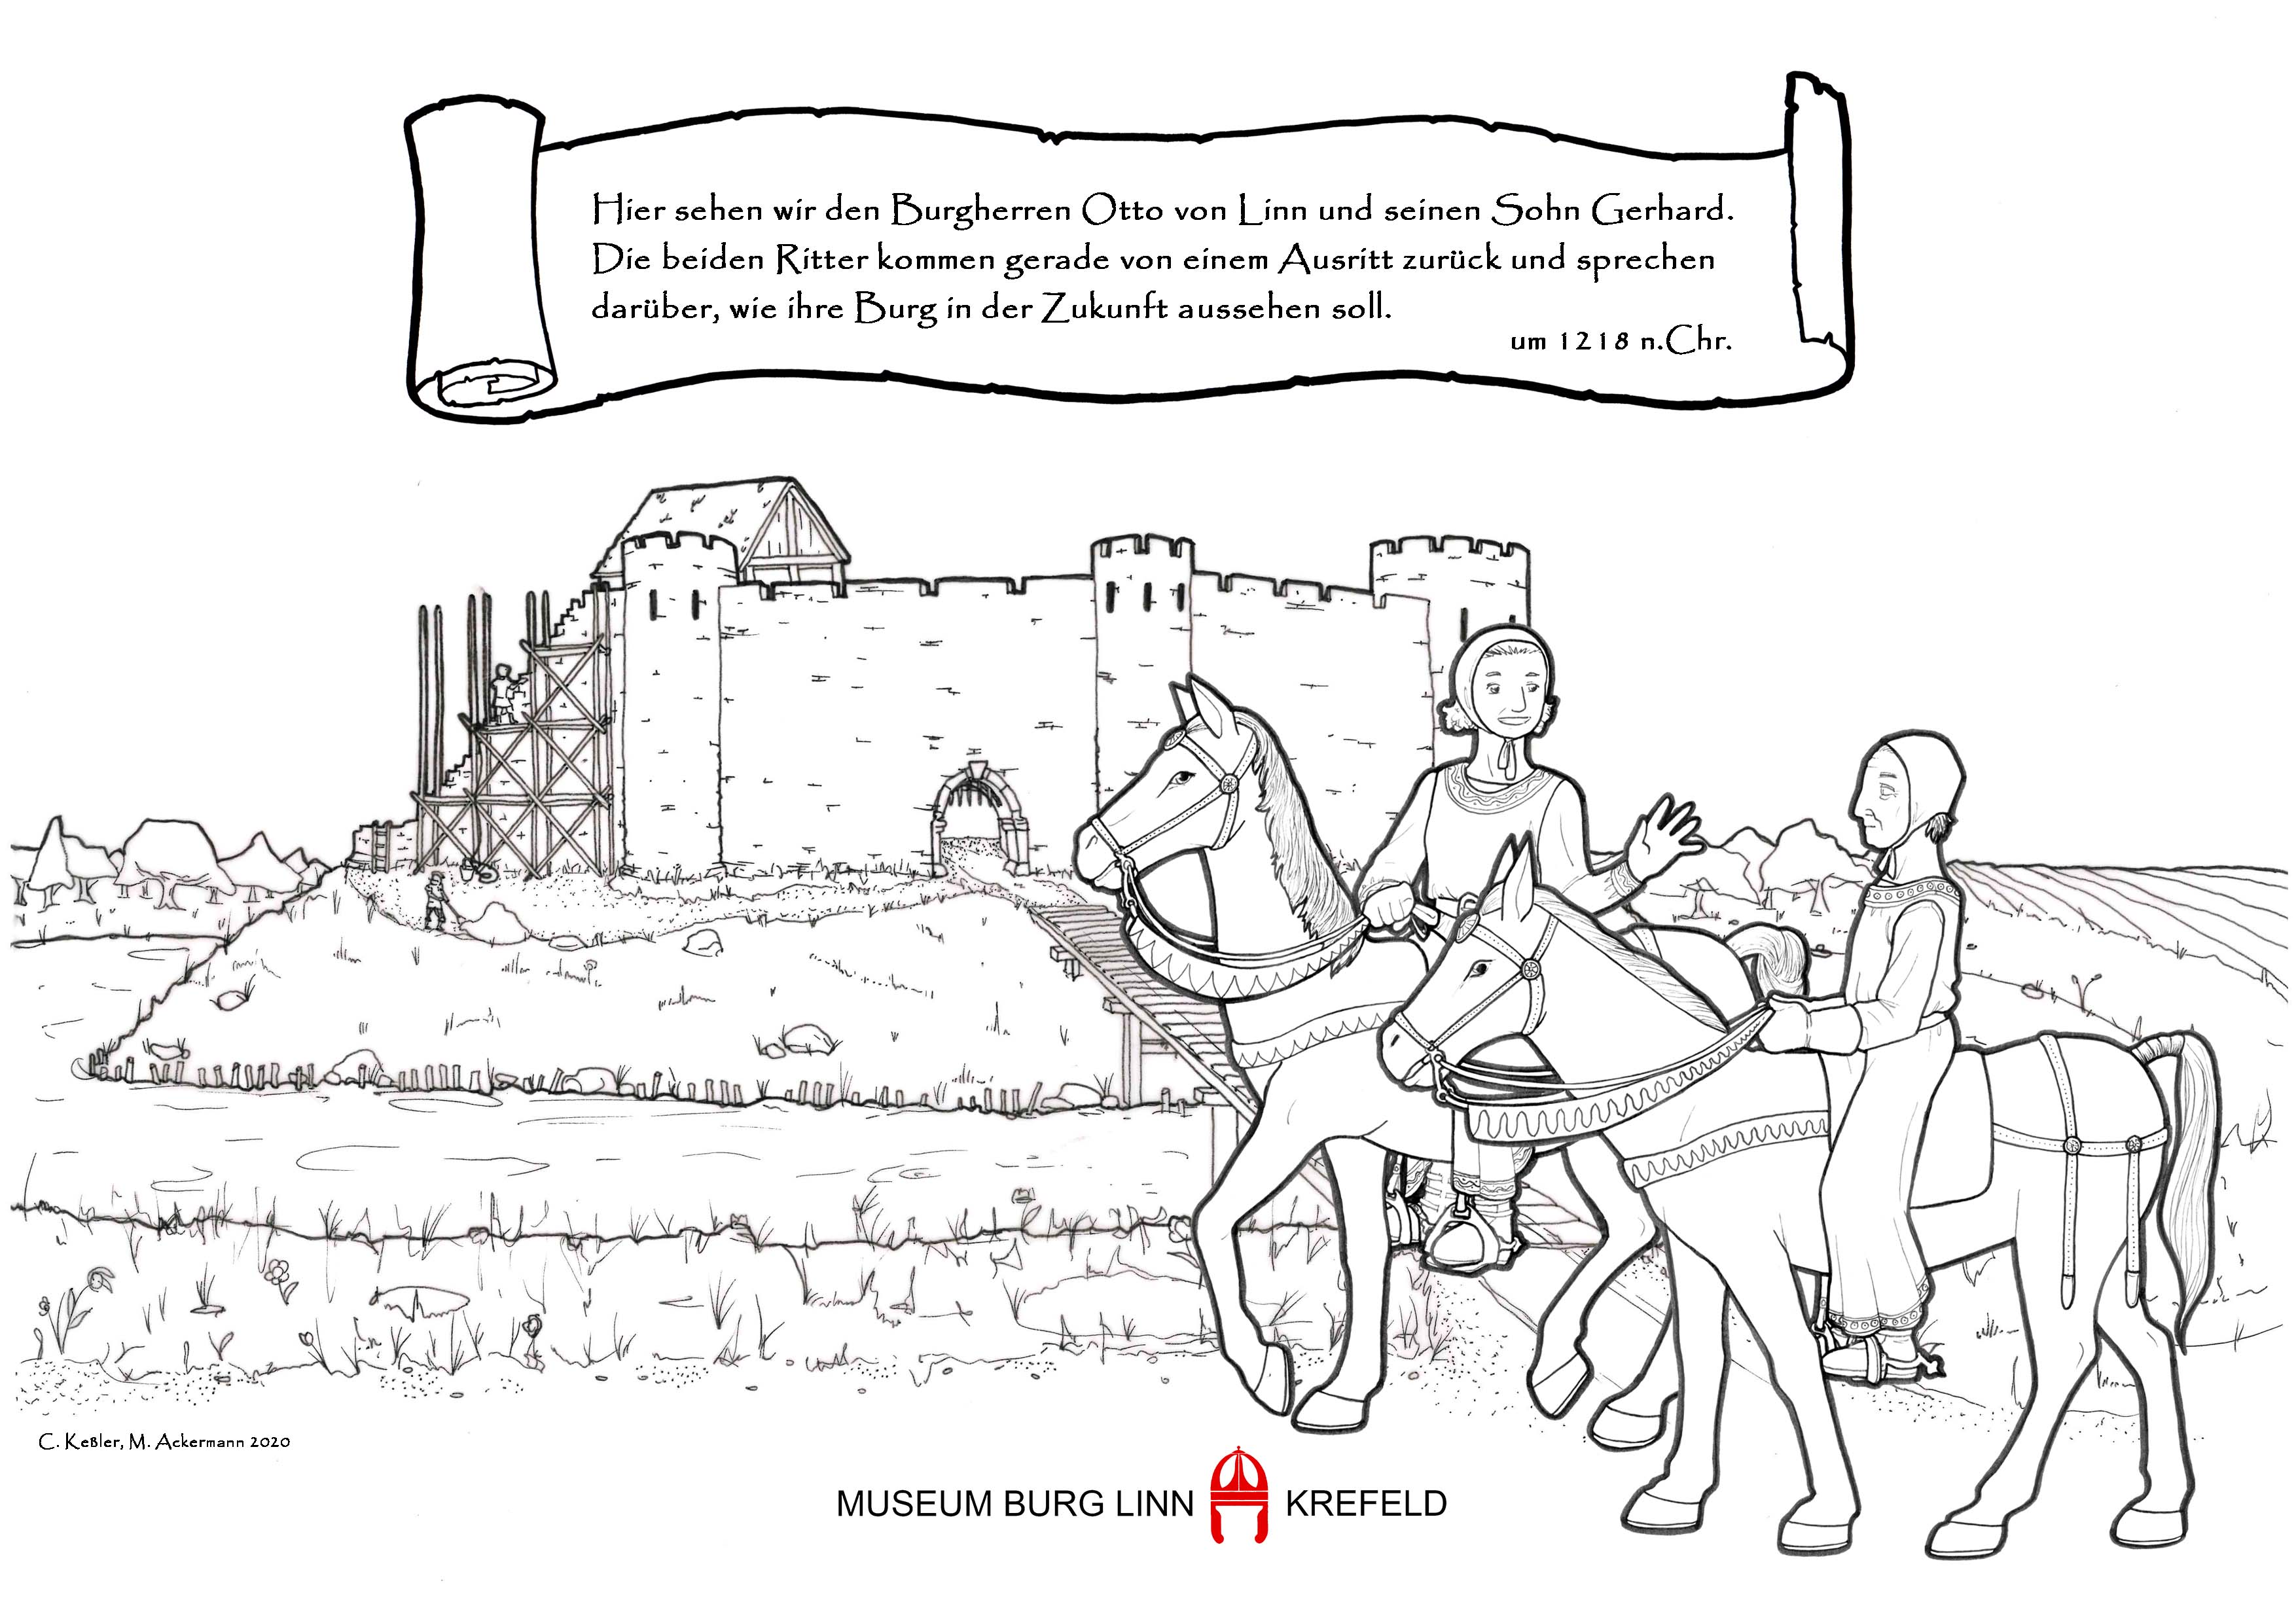 Hier sehen wir den Burgherren Otto von Linn und seinen Sohn Gerhard.
Die beiden Ritter kommen gerade von einem Ausritt zurück und sprechen
darüber, wie ihre Burg in der Zukunft aussehen soll.
um 1218 n.Chr.
C. Keßler, M. Ackermann 2020
MUSEUM BURG LINN KREFELD